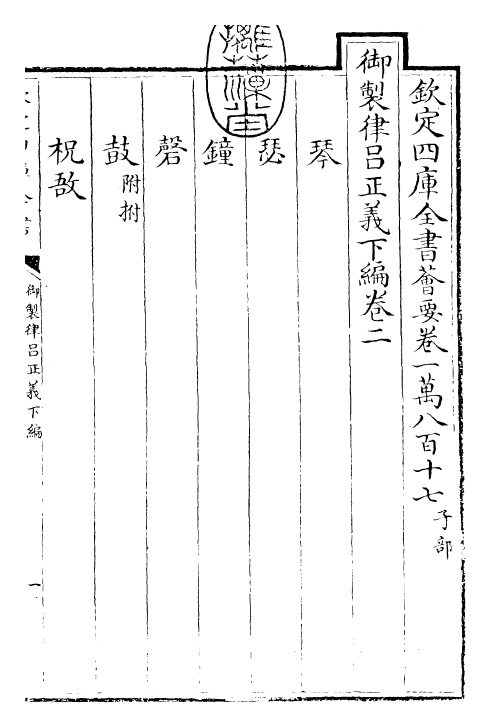 欽定四庫全書薈要卷一萬八百十七子部
御製律呂正義下編卷二
琴
瑟
鐘
磬
鼓附拊
柷敔
御製律呂正義下編
一